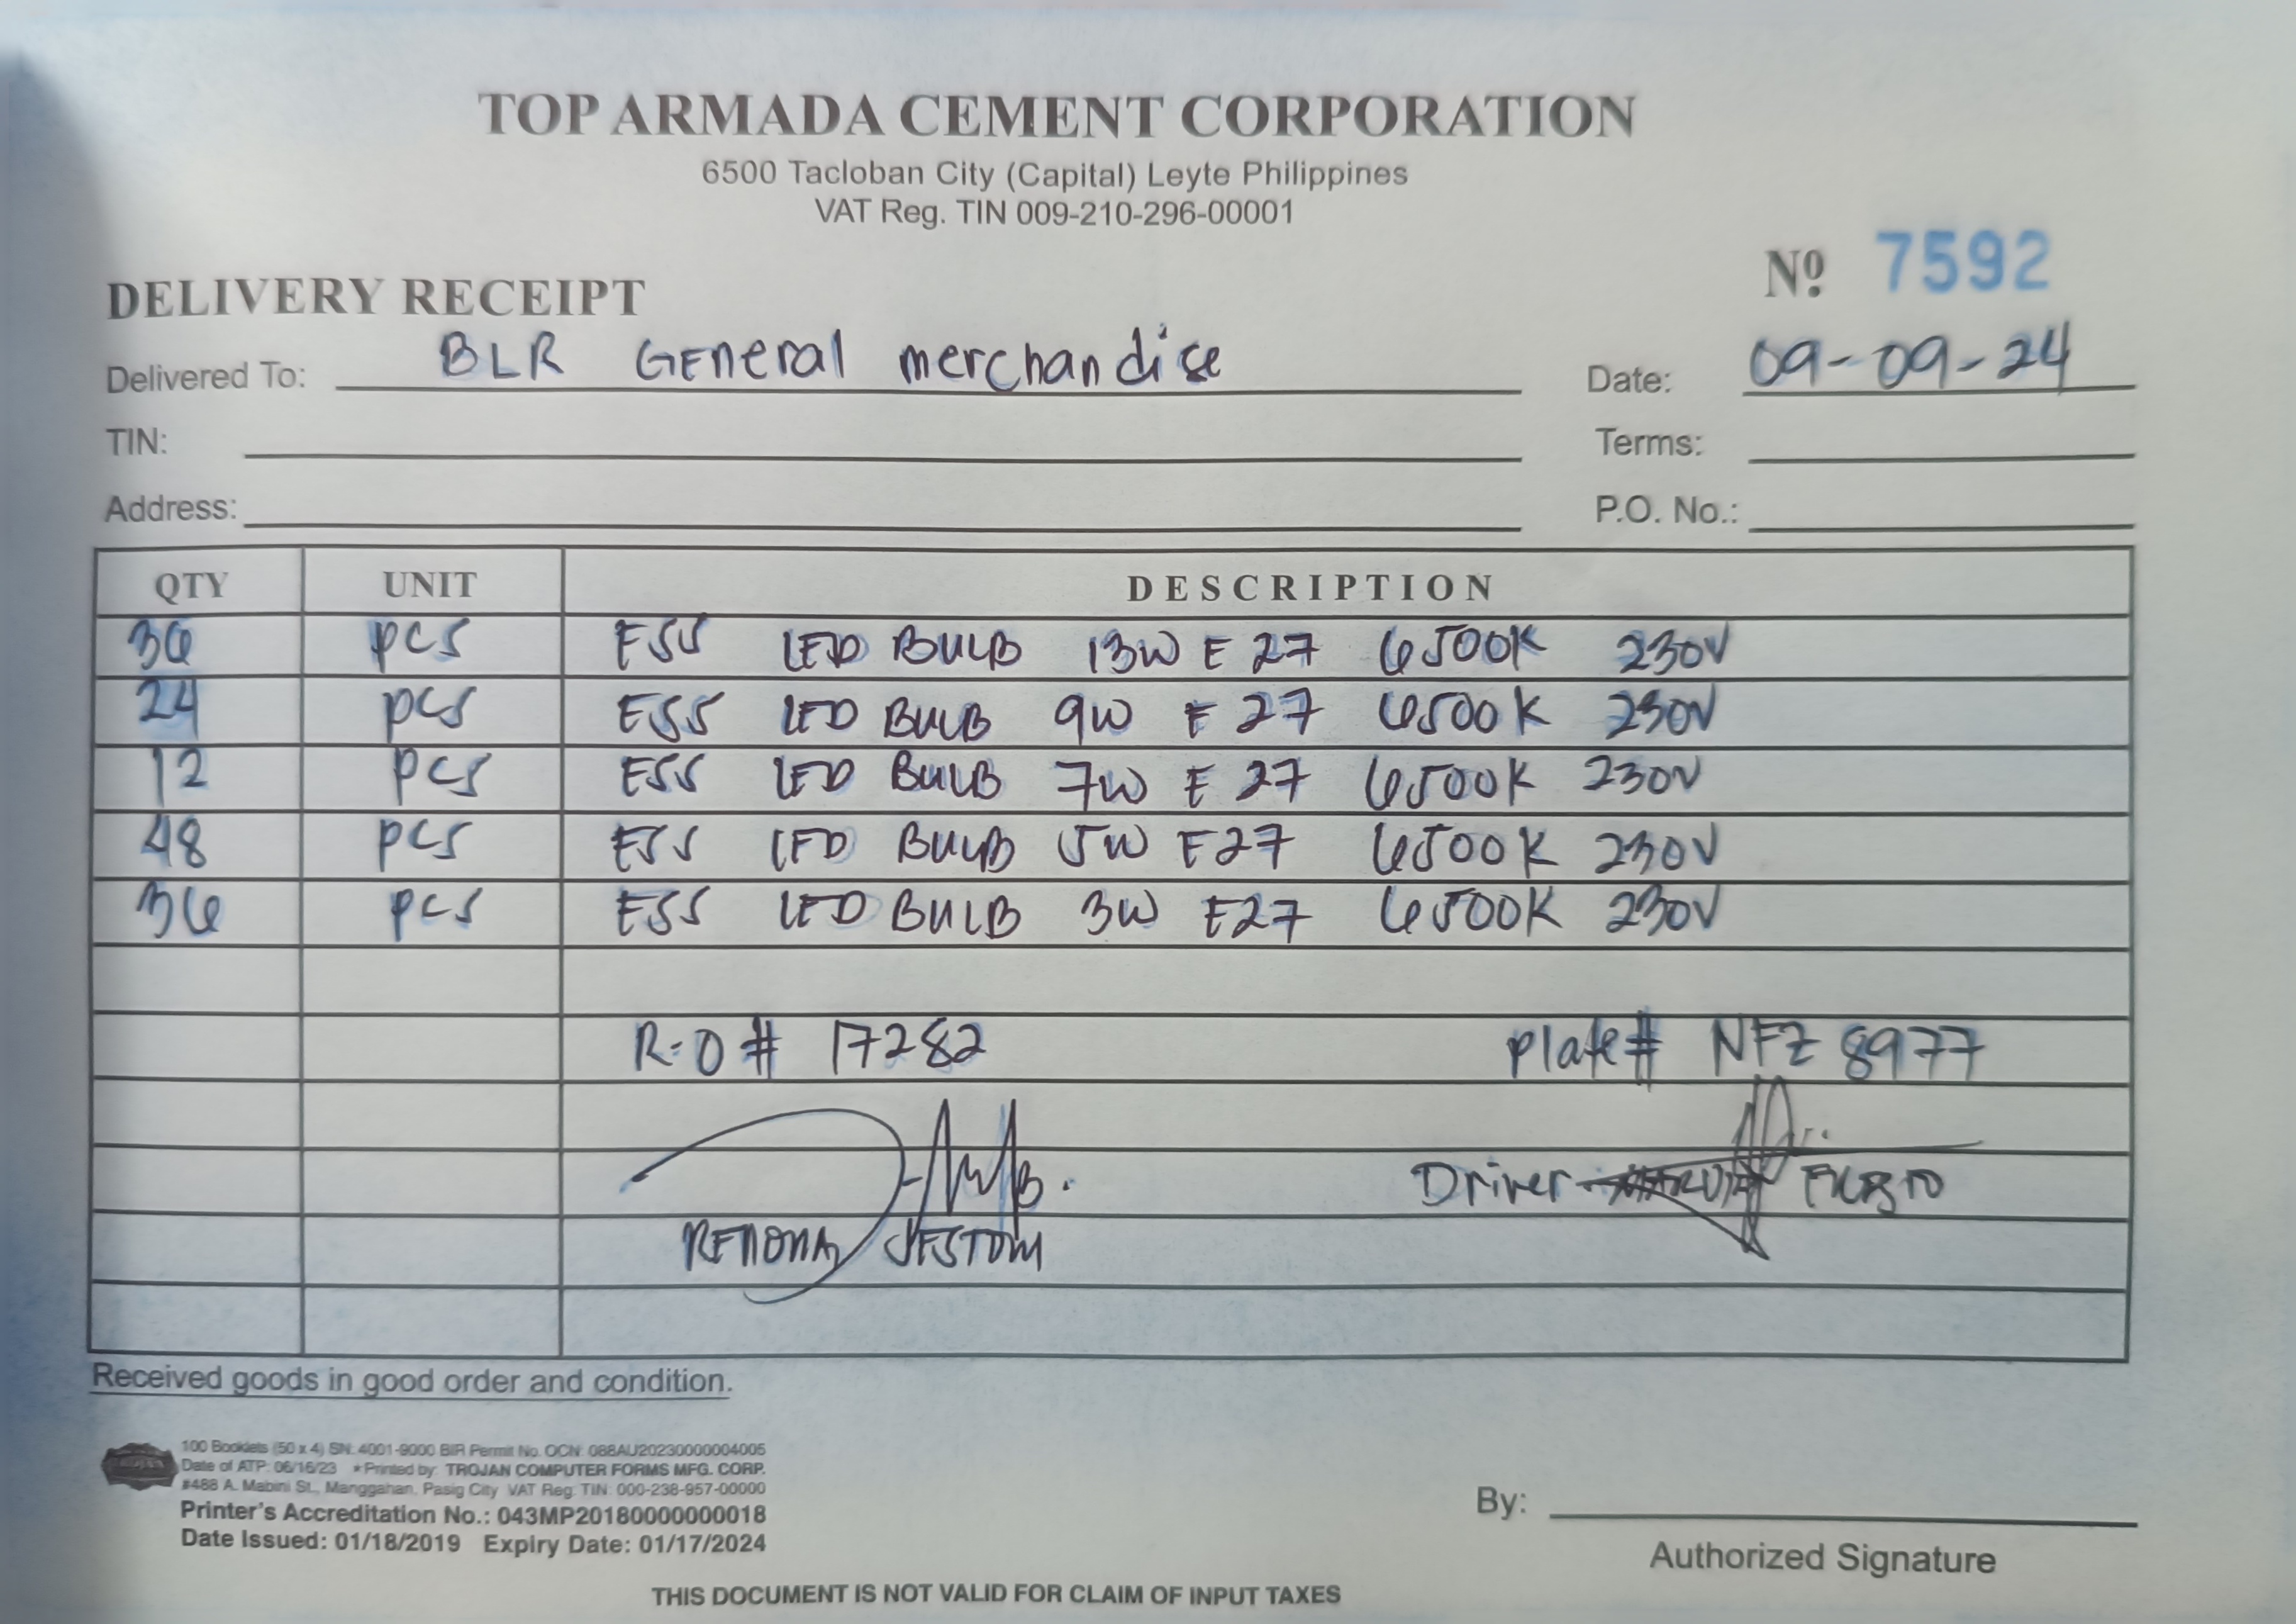 TOP ARMADA CEMENT CORPORATION
6500 Tacloban City (Capital) Leyte Philippines
VAT Reg. TIN 009-210-296-00001
Nº 7592
DELIVERY RECEIPT
Delivered To: BLR General merchandise Date: 09-09-24
TIN: Terms:
Address: P.O. No.:
QTY UNIT DESCRIPTION
36 pcs ESS LED BULB 13W E27 6500K 230V
24 pcs ESS LED BULB 9W E27 6500K 230V
12 pcs ESS LED BULB 7W E27 6500K 230V
48 pcs ESS LED BULB 5W E27 6500K 230V
36 pcs ESS LED BULB 3W E27 6500K 230V
R-O# 17282 plate# NFZ 8977
Driver
Received goods in good order and condition.
100 Booklets (50 x 4) SN: 4001-9000 BIR Permit No. OCN: 088AU20230000004005
Date of ATP: 06/16/23 *Printed by: TROJAN COMPUTER FORMS MFG. CORP.
#488 A. Mabini St., Manggahan, Pasig City VAT Reg. TIN: 000-238-957-00000
Printer's Accreditation No.: 043MP20180000000018
Date Issued: 01/18/2019 Expiry Date: 01/17/2024
By:
Authorized Signature
THIS DOCUMENT IS NOT VALID FOR CLAIM OF INPUT TAXES